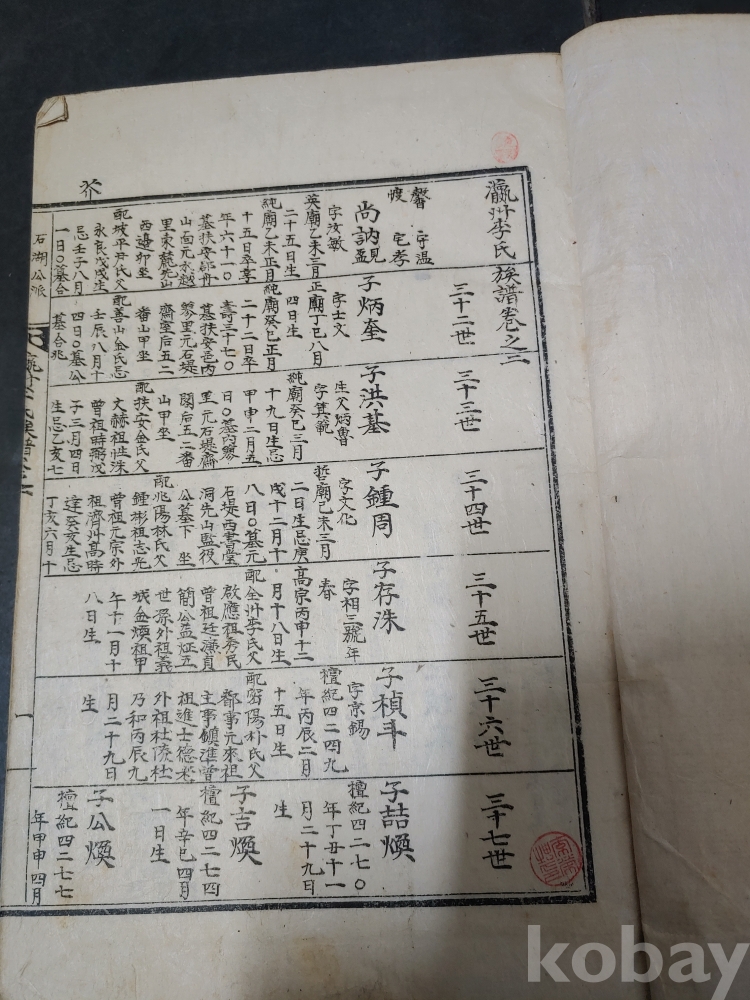 瀛州李氏族譜卷之二
三十二世
三十三世
三十四世
三十五世
三十六世
三十七世
尚訥
字汝敏
英廟乙未三月
二十五日生
純廟乙未正月
十五日卒享
年六十一〇
墓扶安郡舟
山面元水越
里東麓先山
西邊卯坐
配坡平尹氏父
永良戊戌生
忌壬子八月
一日〇墓合
子炳奎
字士文
正廟丁巳八月
四日生
純廟癸巳正月
二十二日卒
壽三十七〇
墓扶安邑內
蓼里元石堤
齋室后五二
番山甲坐
配善山金氏忌
壬辰八月十
四日〇墓公
墓合兆
子洪基
生父炳魯
字箕範
純廟癸巳三月
十九日生忌
甲申二月五
日〇墓內蓼
里元石堤齋
閣后五二番
山甲坐
配扶安金氏父
文赫祖性洙
曾祖時弼戊
子三月四日
生忌乙亥七
子鍾周
字文化
哲廟己未三月
二日生忌庚
戌十二月十
八日〇墓元
石堤西書堂
洞先山監役
公墓下 坐
配兆陽林氏父
鍾彬祖志光
曾祖元宗外
祖濟州高時
達癸亥生忌
丁亥六月十
子存洙
字相三號年
春
高宗丙申十二
月十八日生
配全州李氏父
啟應祖秀民
曾祖廷漢貞
簡公孟畇五
世孫外祖義
城金煥祖甲
午十一月十
八日生
子楨斗
字京錫
檀紀四二四九
年丙辰二月
十五日生
配密陽朴氏父
都事元來祖
主事鎮淮曾
祖進士德秀
外祖杜陵杜
乃和丙辰九
月二十九日
生
子喆煥
檀紀四二七〇
年丁丑十一
月二十九日
生
子言煥
檀紀四二七四
年辛巳四月
一日生
子公煥
檀紀四二七七
年甲申四月
石湖公派
一
kobay